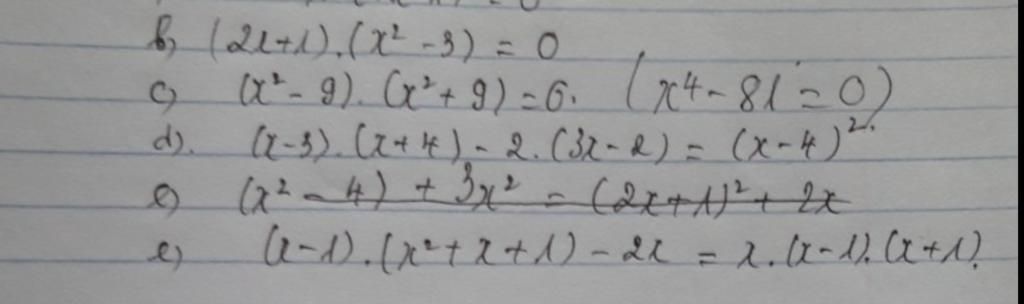 b, (2x+1).(x² - 3) = 0
c) (x² - 9). (x² + 9) = 0. (x⁴ - 81 = 0)
d). (x-3). (x+4) - 2. (3x-2) = (x-4)².
e) (x² - 4) + 3x² = (2x+1)² + 2x
e) (x-1).(x²+x+1) - 2x = x.(x-1).(x+1).